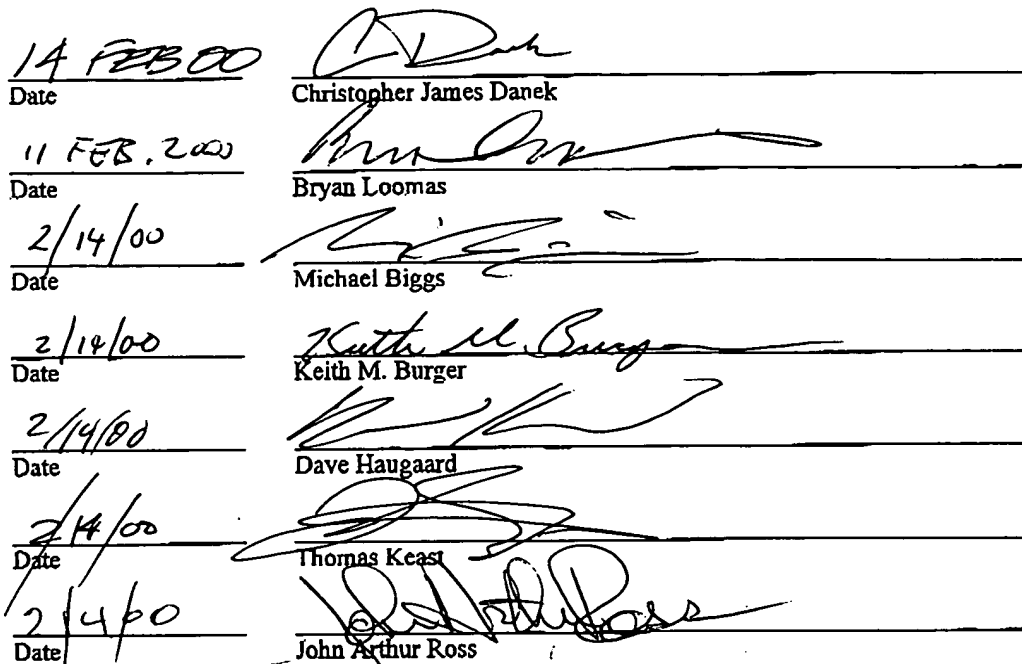 14 FEB 00
Date Christopher James Danek
11 FEB. 2000
Date Bryan Loomas
2/14/00
Date Michael Biggs
2/14/00 Keith M. Burger
Date Keith M. Burger
2/14/00
Date Dave Haugaard
2/14/00
Date Thomas Keast
2/14/00 John Arthur Ross
Date John Arthur Ross